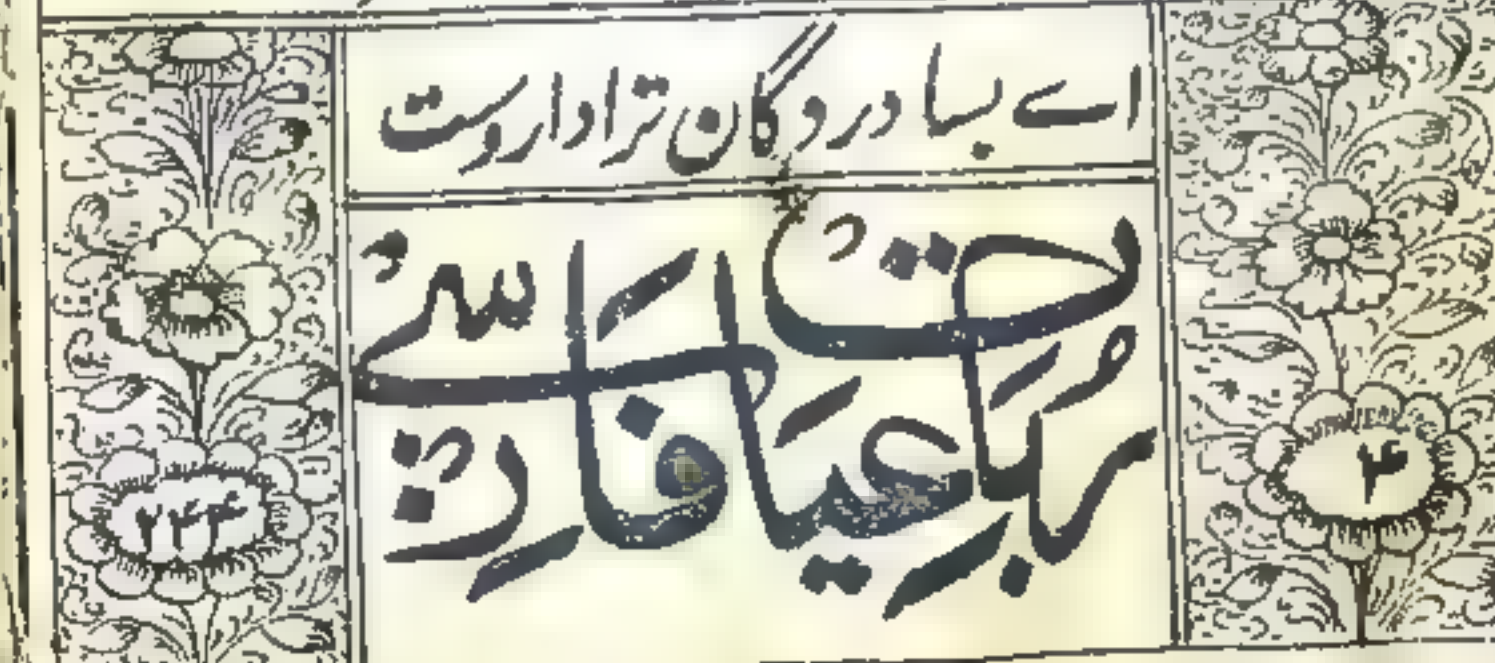 اے بسا درد گان ترا داروست
رُباعیَات فارسے
۴
۲۴۴